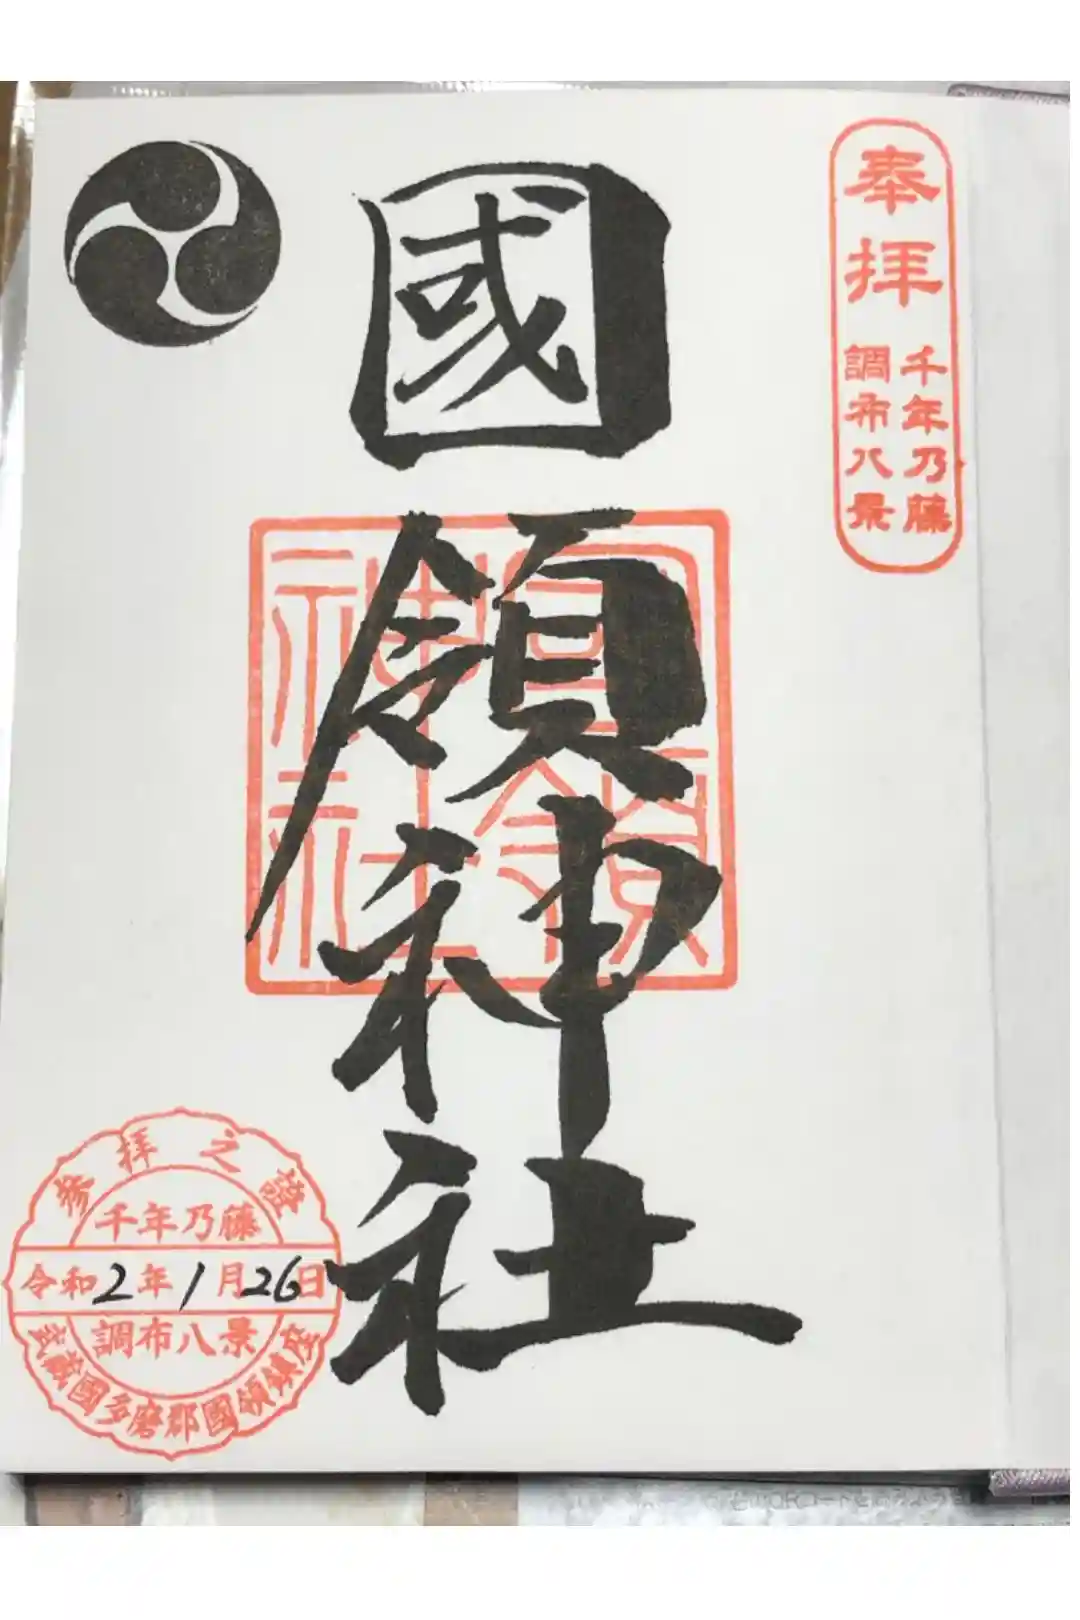 奉拝
千年乃藤
調布八景
國領神社
國領神社
参拝之證
千年乃藤
令和2年1月26日
調布八景
武蔵國多磨郡國領鎮座